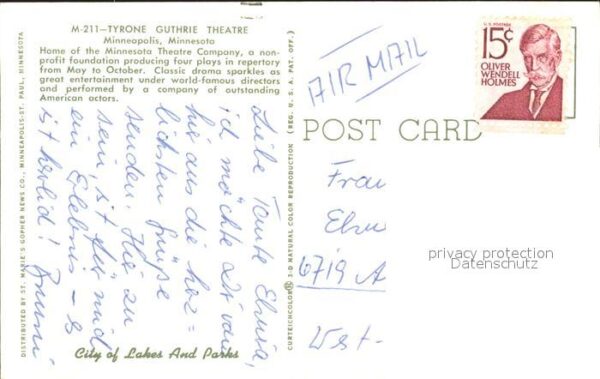 M-211—TYRONE GUTHRIE THEATRE
Minneapolis, Minnesota
Home of the Minnesota Theatre Company, a non-
profit foundation producing four plays in repertory
from May to October. Classic drama sparkles as
great entertainment under world-famous directors
and performed by a company of outstanding
American actors.
Liebe Tante
ich möchte Dir von
hier aus die herz=
lichsten Grüße
senden. Hier zu
sein, ist für mich
ein Erlebnis – es
ist herrlich!
City of Lakes And Parks
DISTRIBUTED BY ST. MARIE'S GOPHER NEWS CO., MINNEAPOLIS-ST. PAUL, MINNESOTA
CURTEICHCOLOR® 3-D NATURAL COLOR REPRODUCTION (REG. U. S. A. PAT. OFF.)
AIR MAIL
U.S. POSTAGE
15¢
OLIVER
WENDELL
HOLMES
POST CARD
Frau
6719 A
West-
privacy protection
Datenschutz